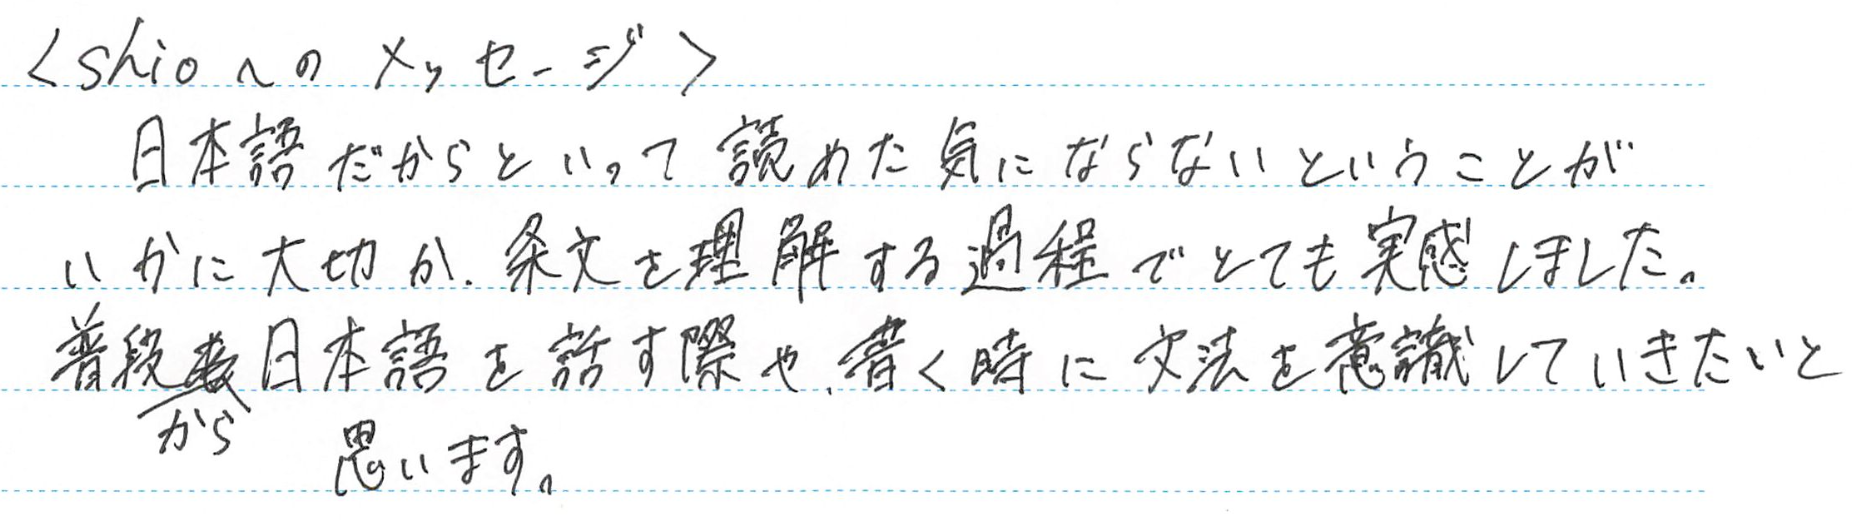 <shioへのメッセージ>
日本語だからといって読めた気にならないということが
いかに大切か、条文を理解する過程でとても実感しました。
普段から日本語を話す際や、書く時に文法を意識していきたいと
思います。